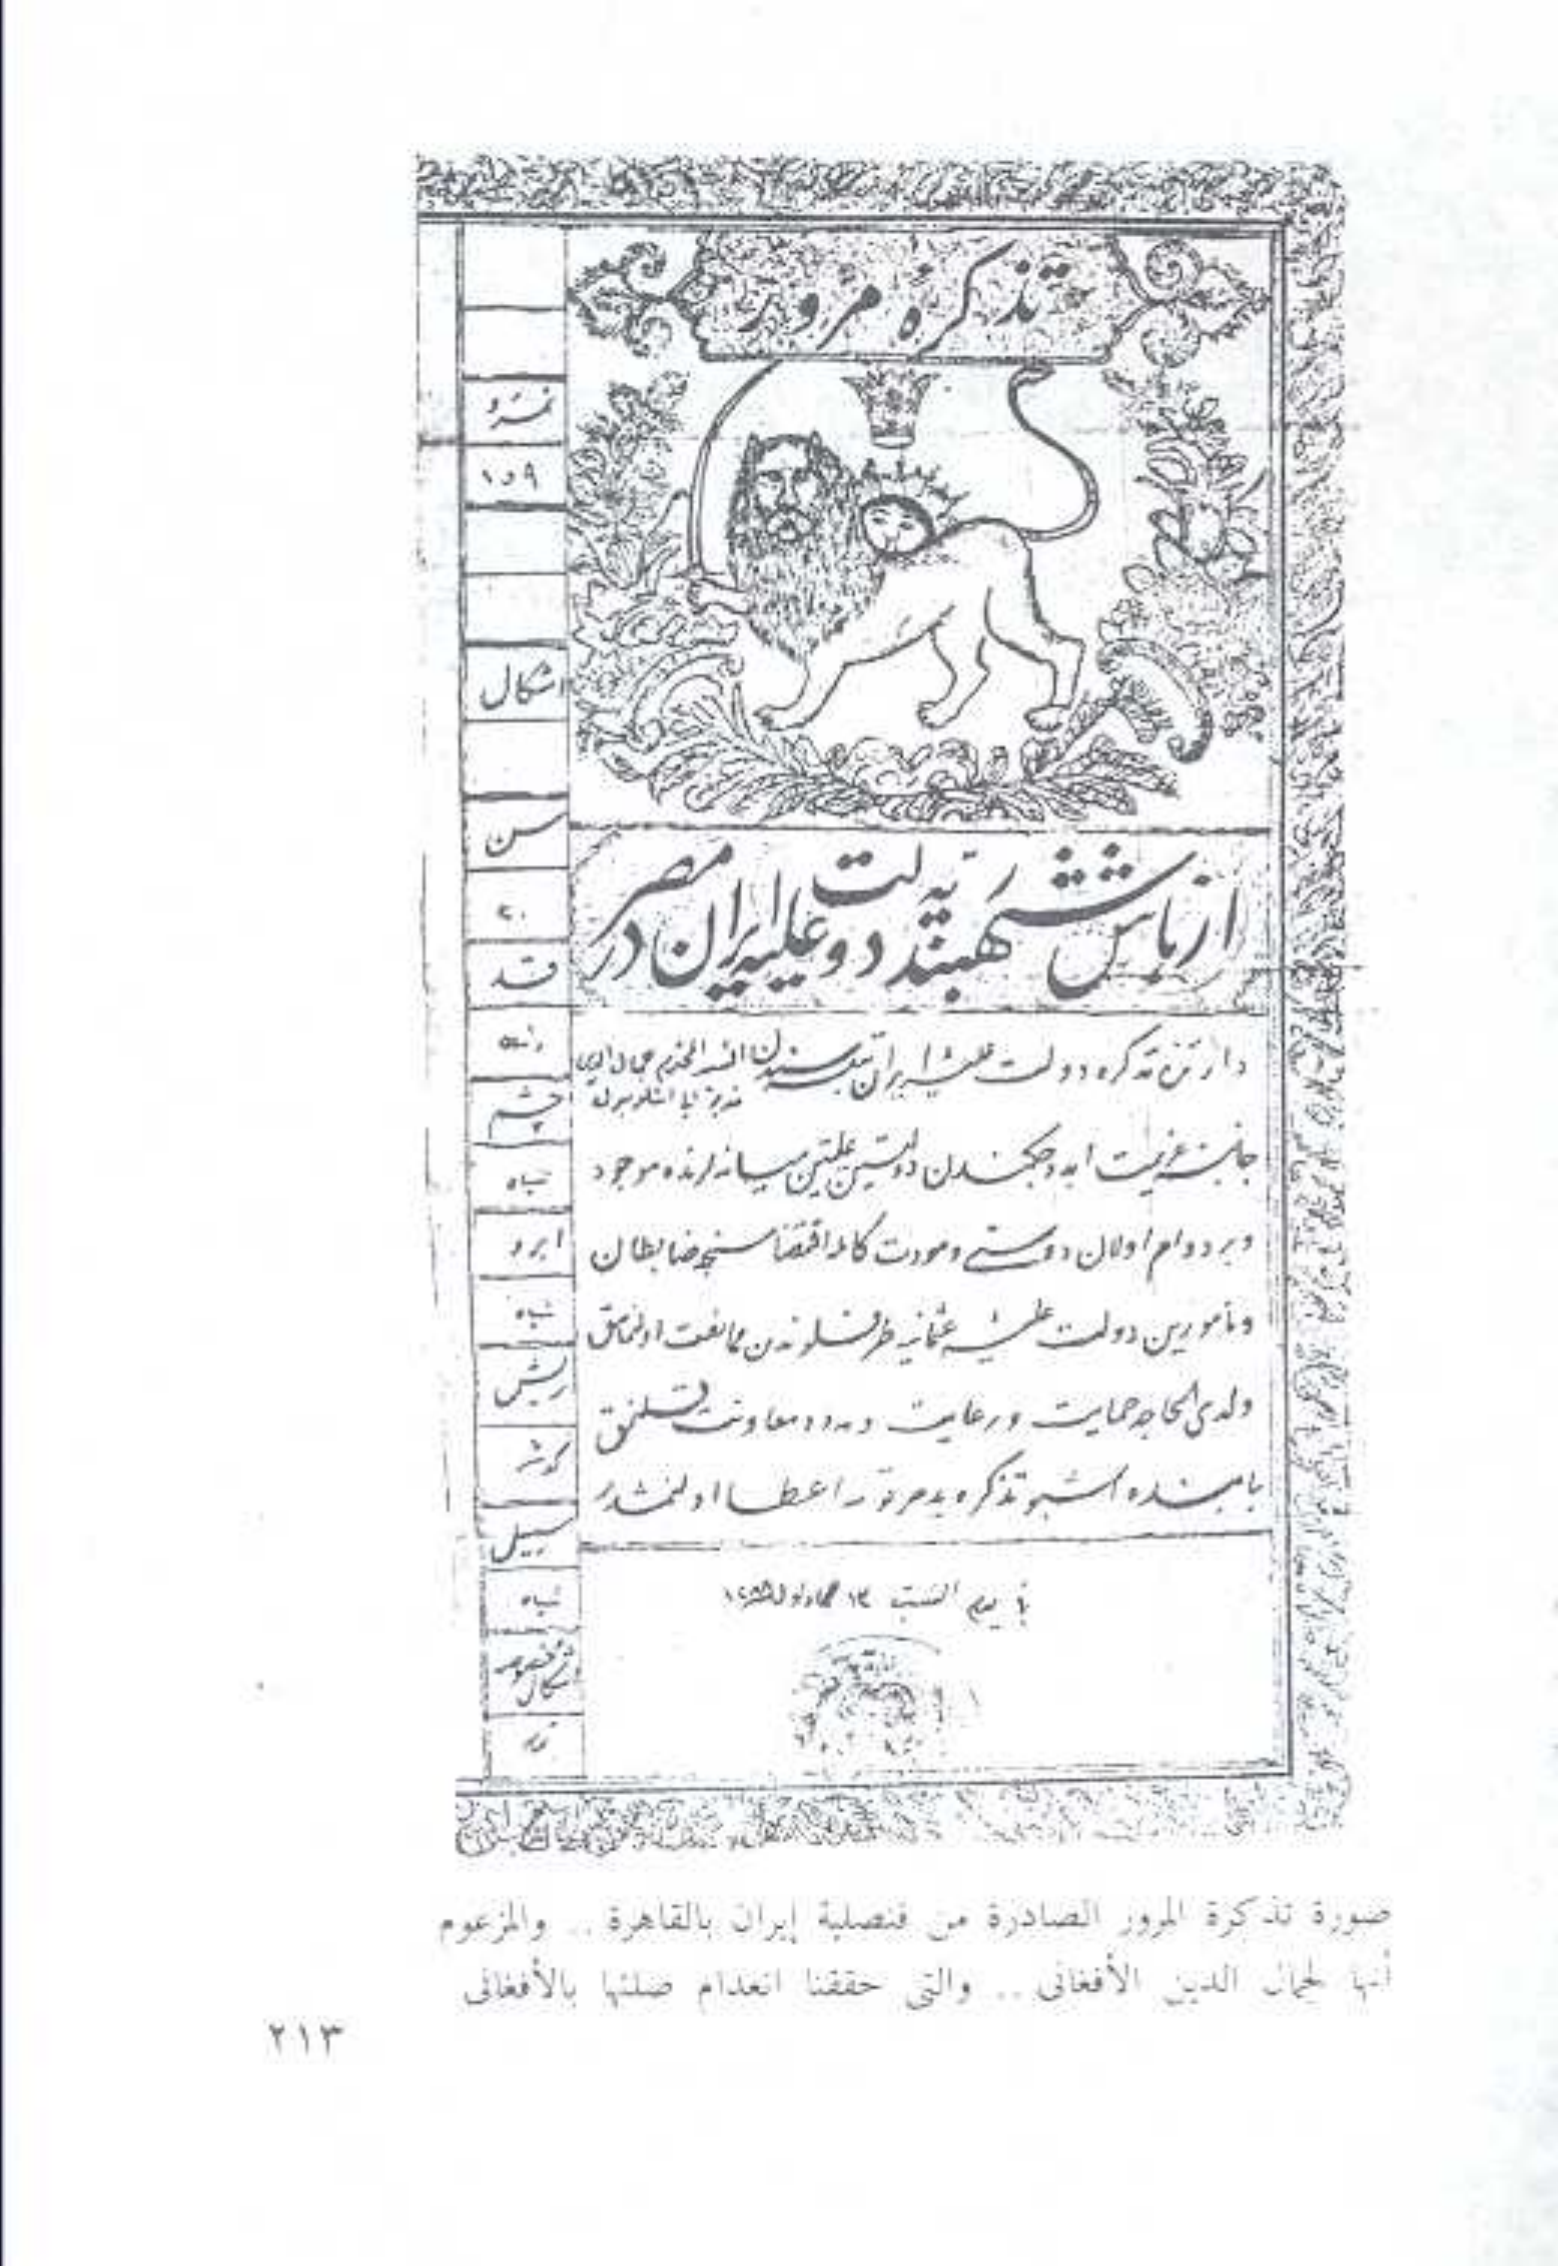 تذكرهٔ مرور
نمرو
١٥٩
اشكال
سن
٣٠
قد
چشم
سياه
ابرو
سياه
ريش
سبيل
سياه
از باش شهبندريه دولت عليه ايران در مصر
تذكره دولت عليه ايران جمال الدين
جانبنه عزيمت ايده جكندن دولتين عليتين ميانه لرنده موجود
وبردوام اولان دوستى ومودت كامله اقتضاسنجه ضابطان
ومأمورين دولت عليه عثمانيه طرفلرندن ممانعت اولنمامق
ولدى الحاجه حمايت ورعايت ومعاونت قلنمق
بابنده اشبو تذكره مرور اعطا اولنمشدر
يوم السبت ١٣
صورة تذكرة المرور الصادرة من قنصلية إيران بالقاهرة .. والمزعوم
أنها لجمال الدين الأفغانى .. والتى حققنا انعدام صلتها بالأفغانى
٢١٣